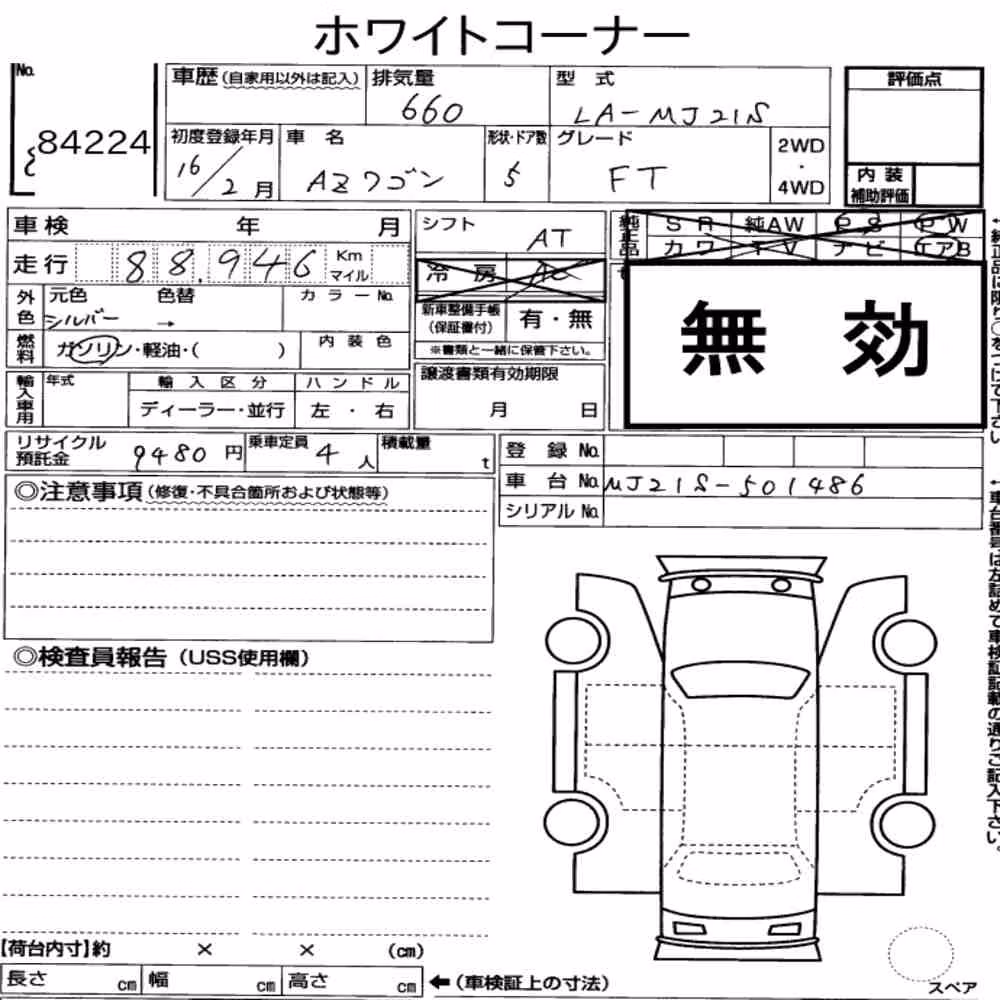 ホワイトコーナー
No. 84224
車歴(自家用以外は記入) 排気量 660 型式 LA-MJ21S 評価点
初度登録年月 16/2月 車名 AZワゴン 形状・ドア数 5 グレード FT 2WD・4WD
内装補助評価
車検 年 月 シフト AT 純正品 SR 純AW PS PW
カワ TV ナビ エアB
走行 88.946 Km マイル 冷房 AC
外色 元色 シルバー 色替 → カラーNo.
新車整備手帳(保証書付) 有・無
※書類と一緒に保管下さい。
無効
燃料 ガソリン・軽油・( ) 内装色
輸入車用 年式 輸入区分 ハンドル
ディーラー・並行 左・右
譲渡書類有効期限
月 日
リサイクル預託金 9480円 乗車定員 4人 積載量 t
登録No.
車台No. MJ21S-501486
シリアルNo.
◎注意事項(修復・不具合箇所および状態等)
◎検査員報告(USS使用欄)
【荷台内寸】約 × × (cm)
長さ cm 幅 cm 高さ cm ←(車検証上の寸法)
スペア
←純正品に限り○をつけて下さい
←車台番号は左詰めで車検証記載の通りご記入下さい。